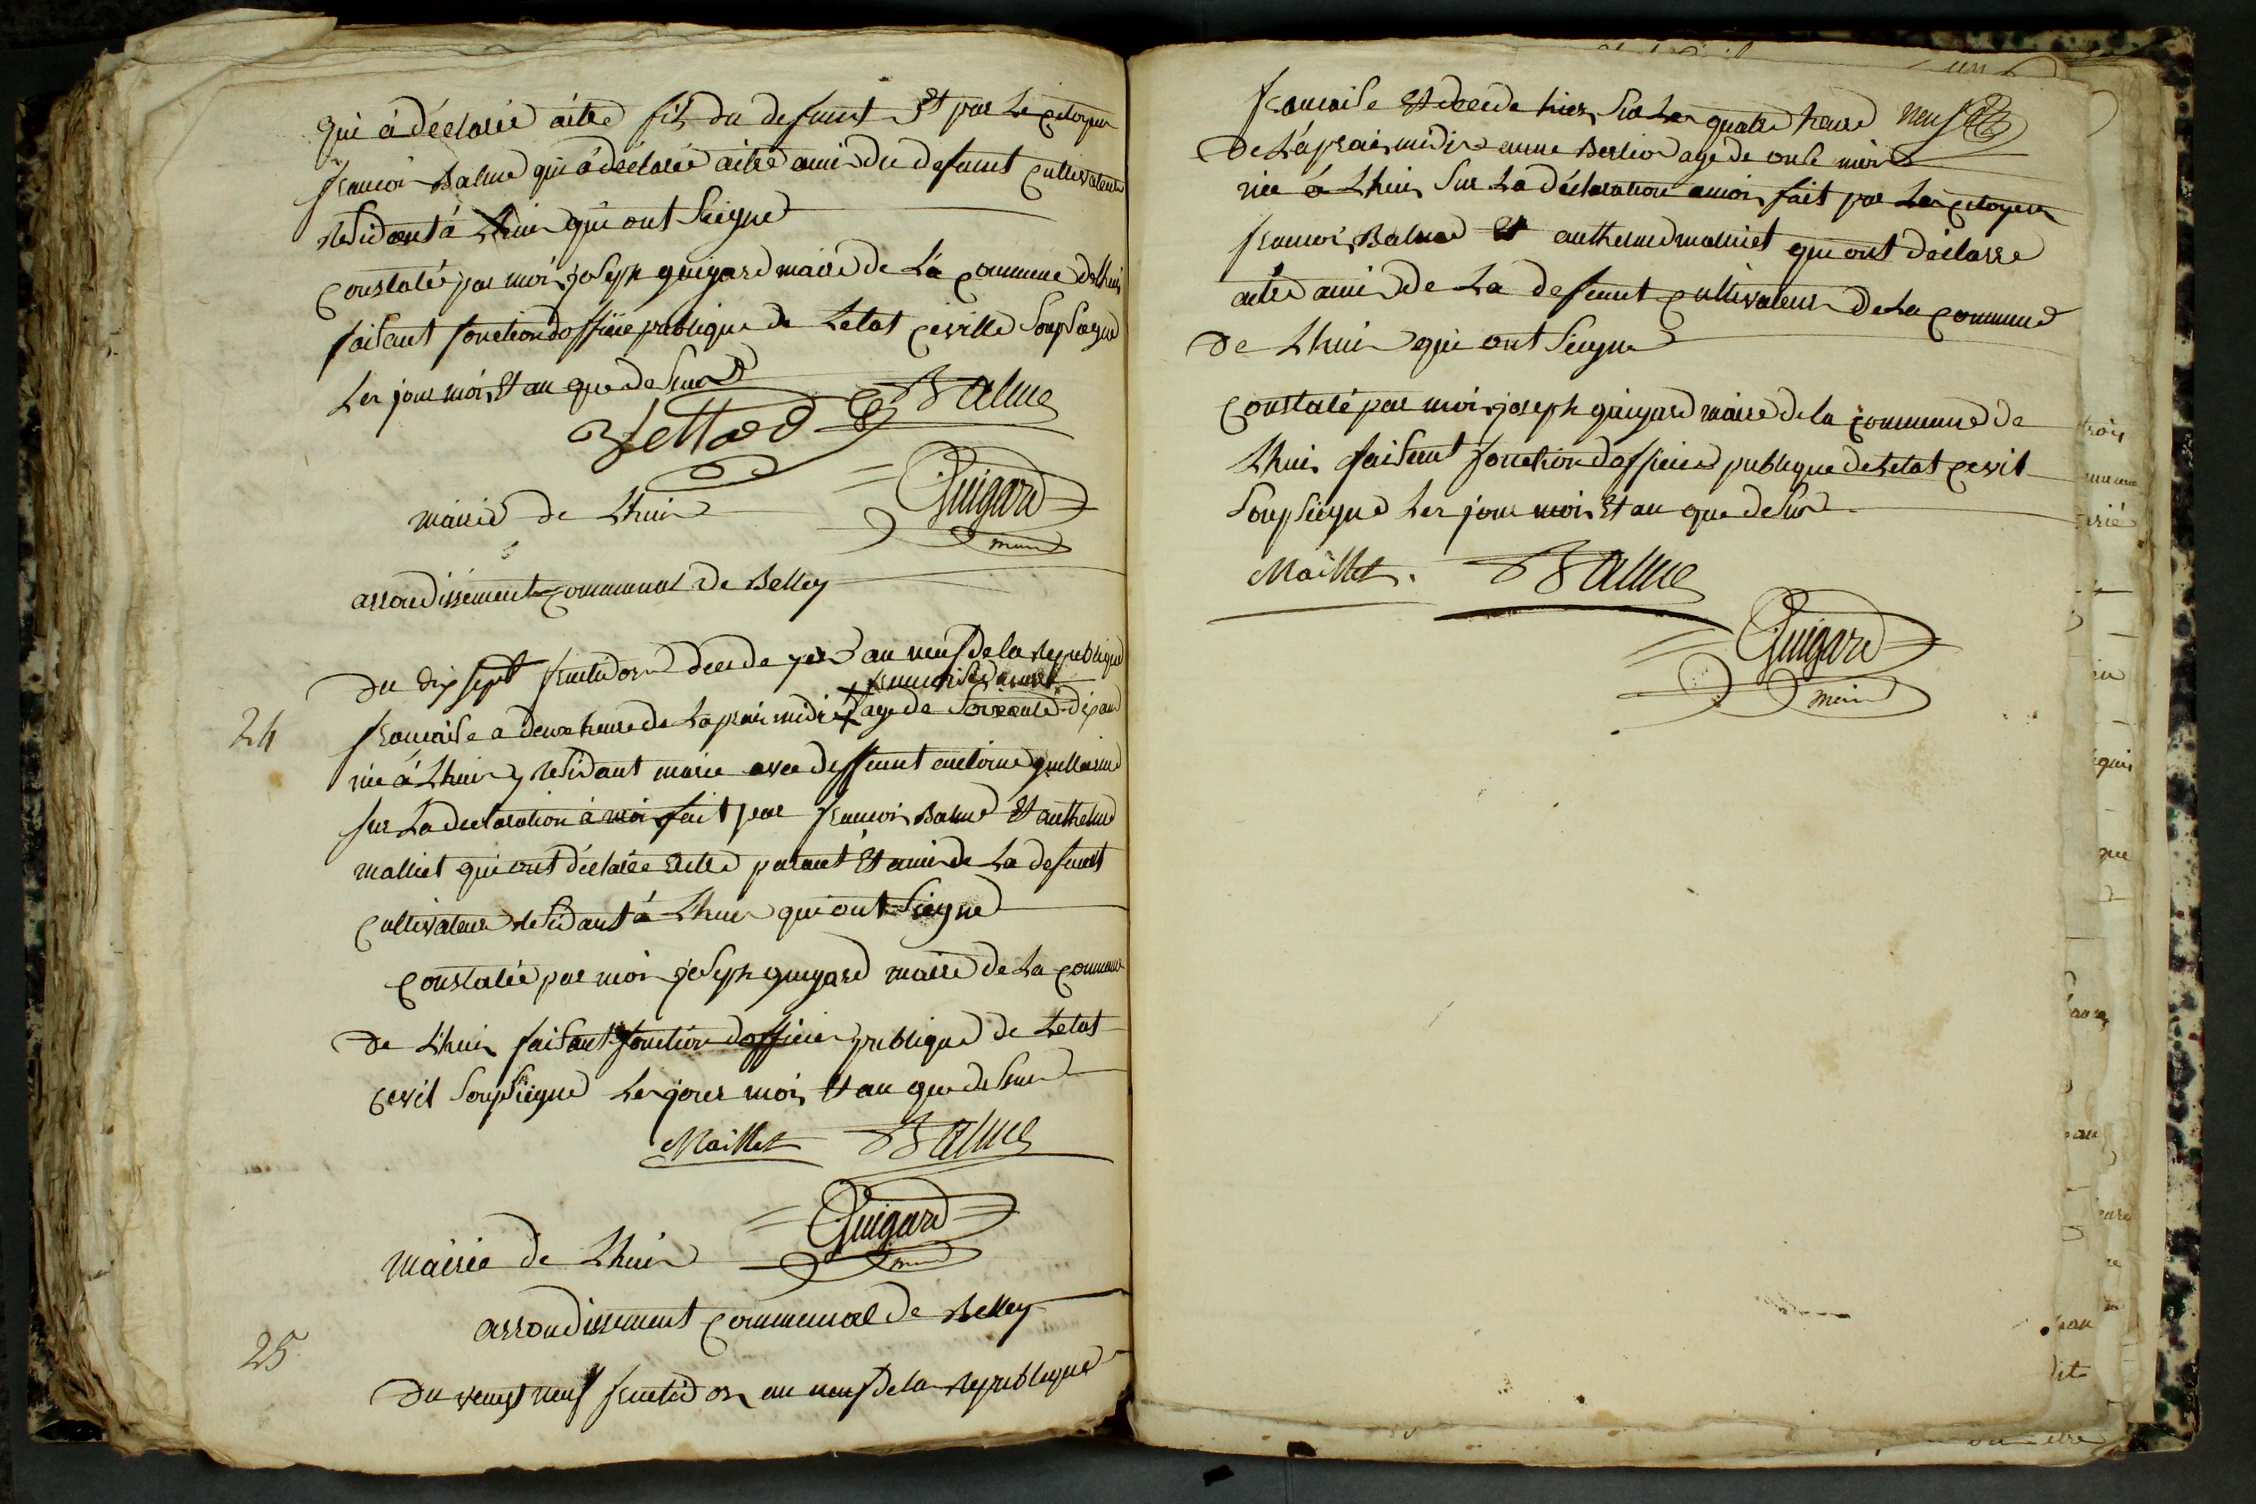 qui à déclarée aitre fils du defunt Et par Le Citoyen
francois Balme qui à déclarée aitre amis du defunt Cultivateur
residant à Lhuis qui ont Siegne
Constatée par moi joseph guigard maire de La Commune de Lhuis
faisant fonction doffice publique de Letat Ceville SoupSiegne
Les jour mois Et an que desus
Balme
Guigard
maire
mairie de Lhuis
arrondissement Communal de Belley
24
Du dix sept fructidor an neuf de la Republique
francaise a deux heure de Laprais midi age de Soixante dix ans
née à Lhuis y residant marie avec deffunt antoine guillerme
sur La declaration à moi fait par francois Balme Et anthelme
malliet qui ont déclarée aitre parant Et amis de La defunt
Cultivateur residant à Lhuis qui ont Siegne
Constatée par moi joseph guigard maire de La Commune
de Lhuis faisant fonction dofficier publique de Letat
Cevil SoupSiegne Les jour mois Et an que desus
Maillet Balme
Guigard
maire
mairie de Lhuis
arrondissement Communal de Belley
25
Du vengt neuf fructidor an neuf de la Republique
francaise Et decede hier Sur Les quatre heure neuf
De Laprais midi anne Berlior age de onse mois
née à Lhuis Sur La déclaration a moi fait par Les Citoyen
francois Balme Et anthelme malliet qui ont déclarre
aitre amis de La defunt Cultivateur de La Commune
de Lhuis qui ont Siegne
Constaté par moi joseph guigard maire de la Commune de
Lhuis faisant fonction dofficier publique de Letat Cevil
SoupSiegne Les jour mois Et an que desus
Maillet Balme
Guigard
maire